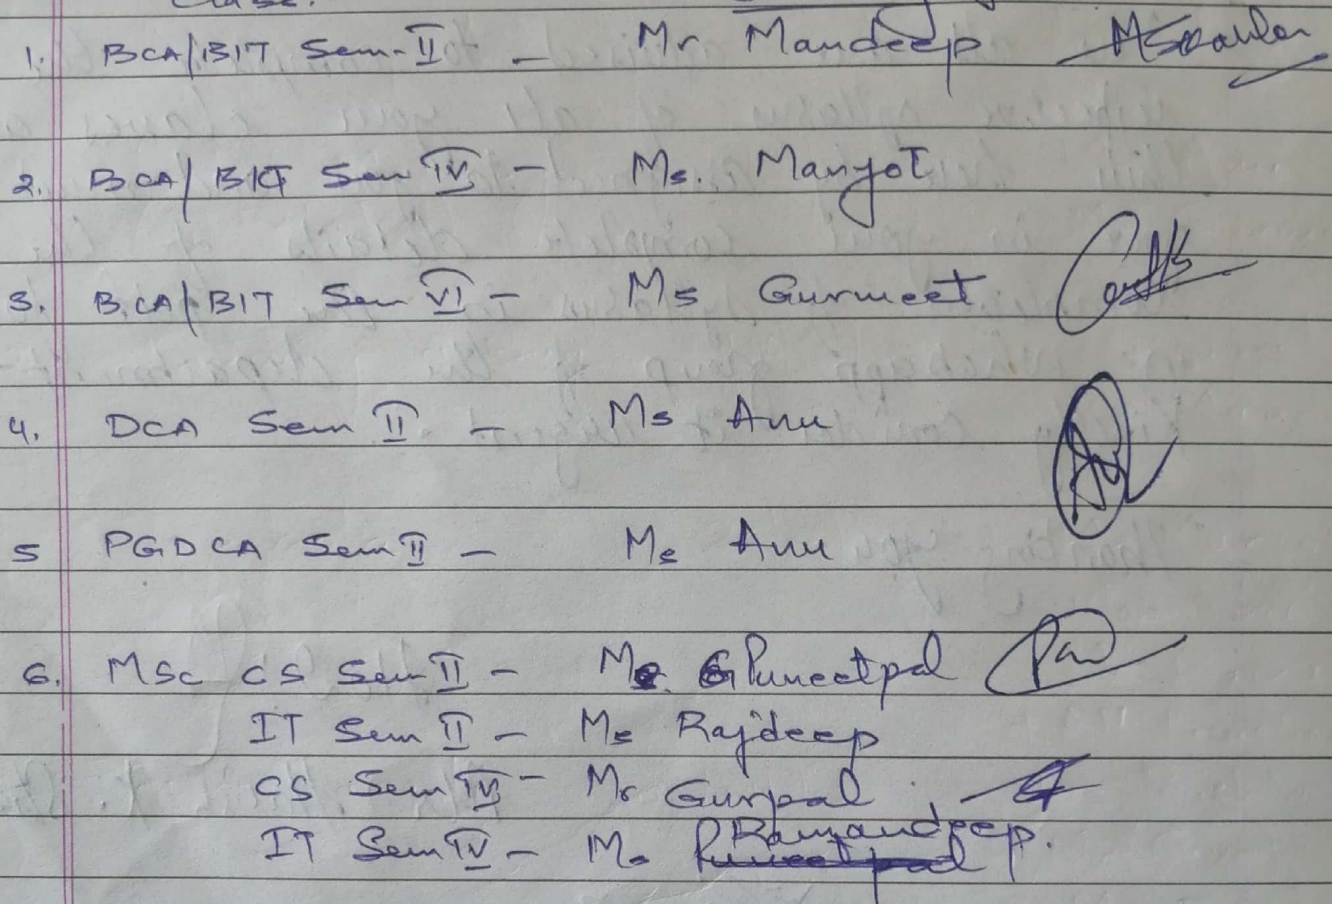 Class.
1. BCA/BIT Sem-II - Mr Mandeep
2. BCA/BIT Sem IV - Ms. Manjot
3. BCA/BIT Sem VI - Ms Gurmeet
4. DCA Sem II - Ms Anu
5 PGDCA Sem II - Ms Anu
6. MSc CS Sem II - Ms Puneetpal
IT Sem II - Ms Rajdeep
CS Sem IV - Mr Gurpal
IT Sem IV - Ms Ramandeep.